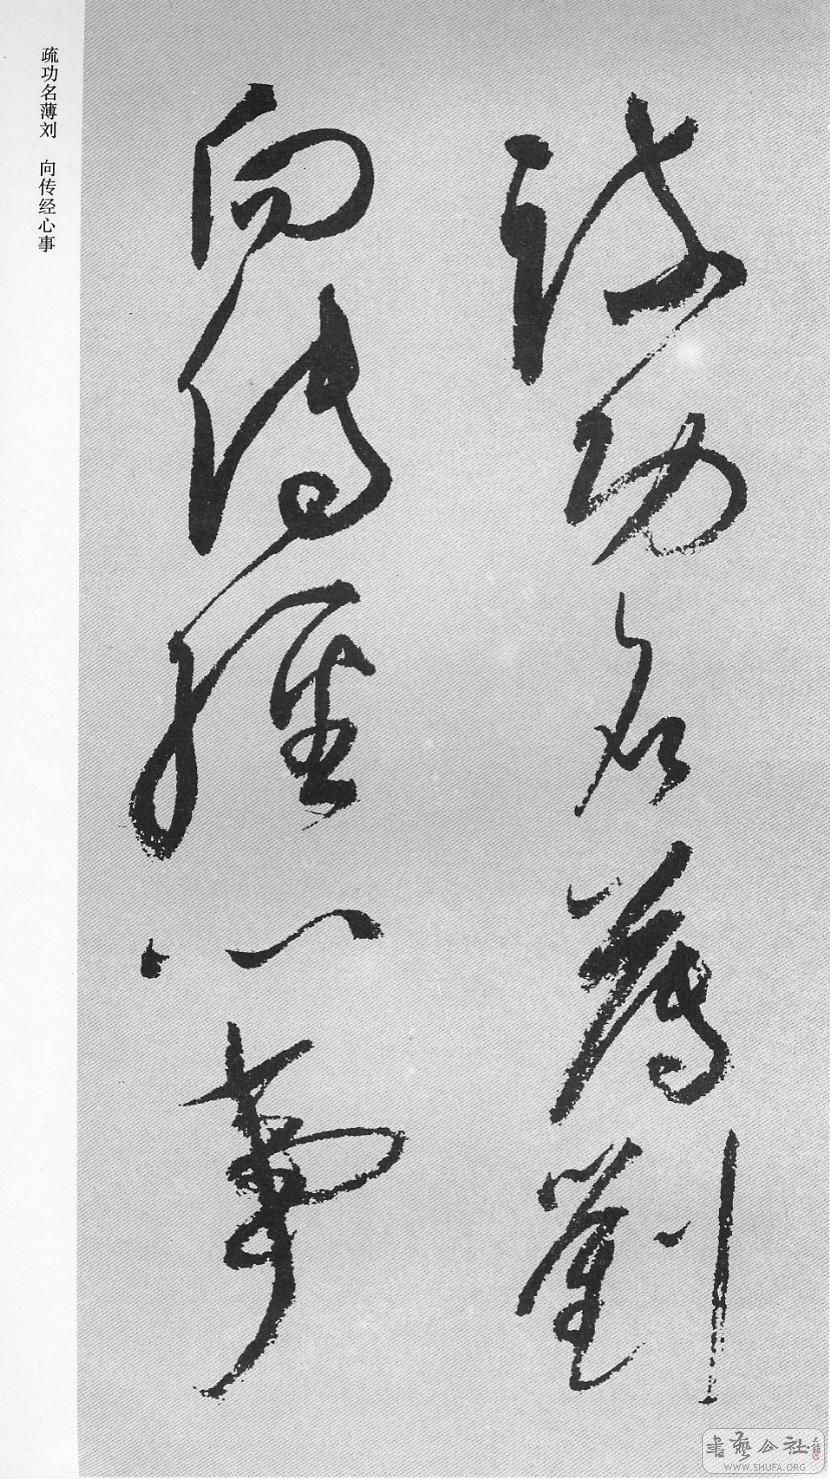 疏功名薄劉
向傳經心事
疏功名薄刘 向传经心事
書藝公社
WWW.SHUFA.ORG